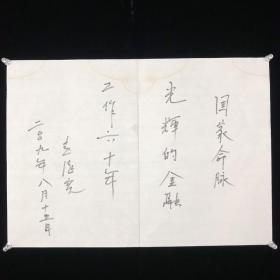 国家命脉
光輝的金融
工作六十年
二〇〇九年八月十五日